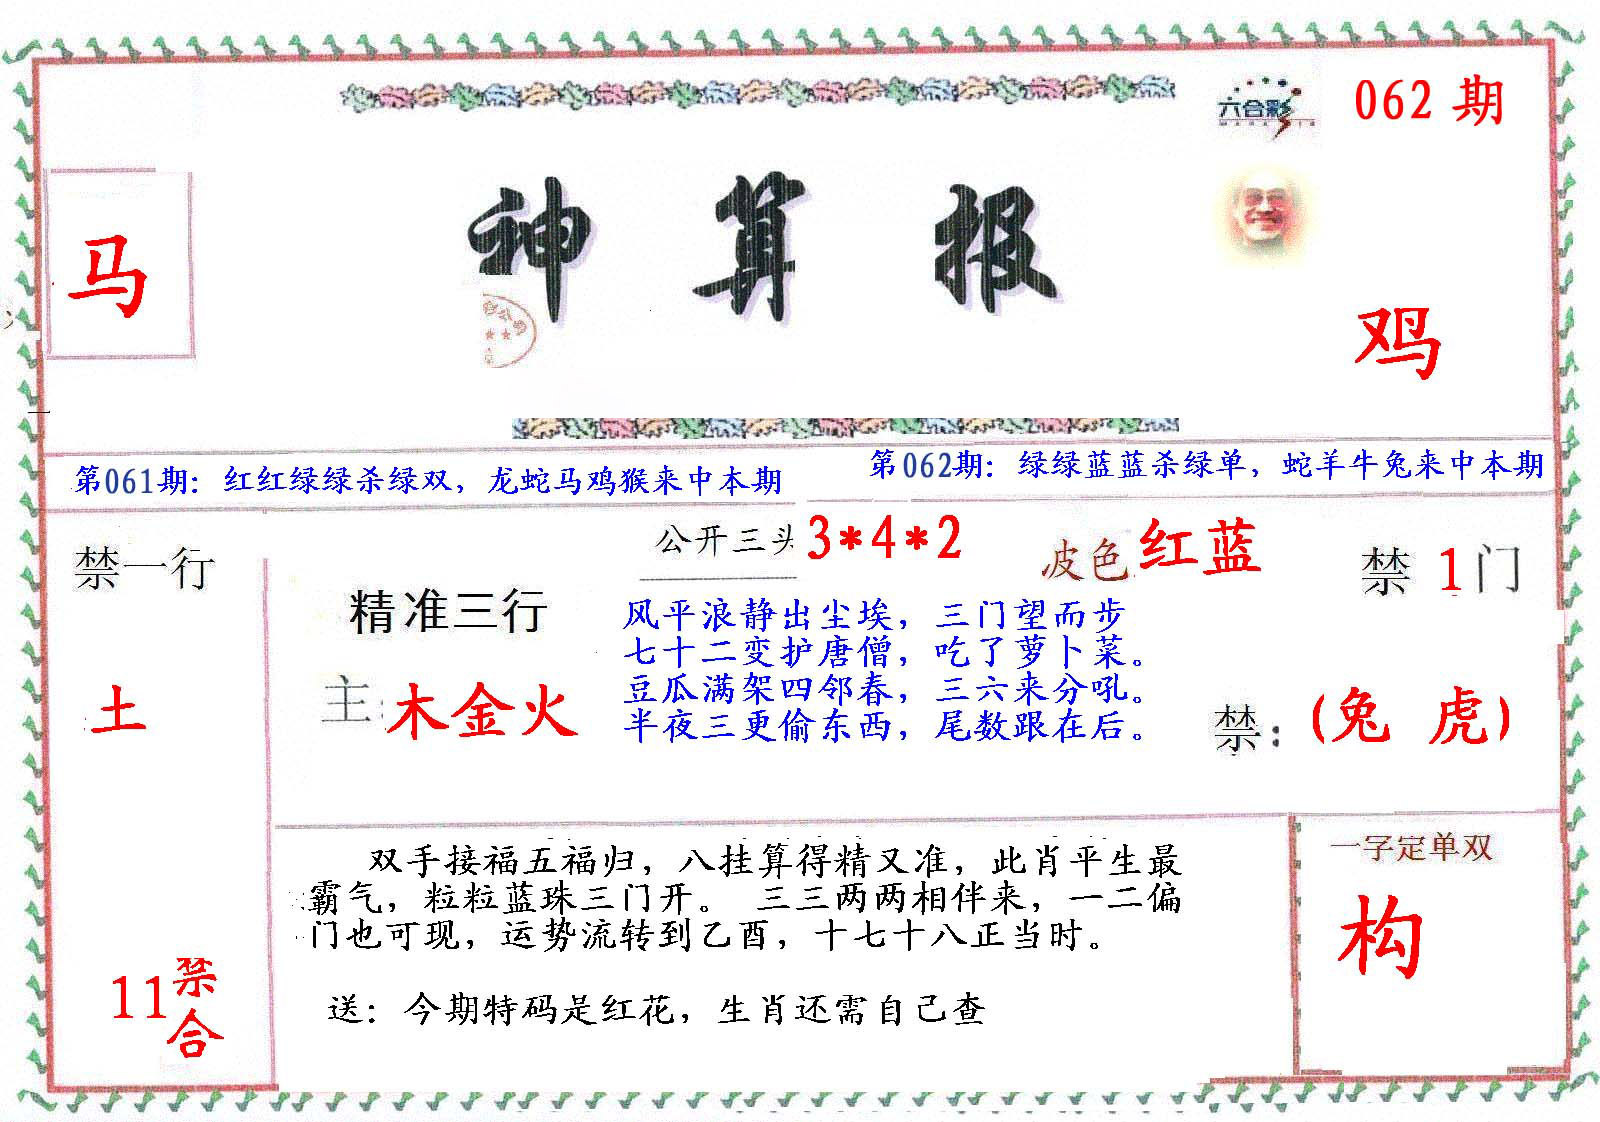 六合彩
062 期
神算报
马
鸡
第061期：红红绿绿杀绿双，龙蛇马鸡猴来中本期
第062期：绿绿蓝蓝杀绿单，蛇羊牛兔来中本期
禁一行
土
11禁合
精准三行
主：木金火
公开三头 3*4*2
波色 红蓝
禁 1 门
风平浪静出尘埃，三门望而步
七十二变护唐僧，吃了萝卜菜。
豆瓜满架四邻春，三六来分吼。
半夜三更偷东西，尾数跟在后。
禁：(兔 虎)
双手接福五福归，八挂算得精又准，此肖平生最
霸气，粒粒蓝珠三门开。 三三两两相伴来，一二偏
门也可现，运势流转到乙酉，十七十八正当时。
送：今期特码是红花，生肖还需自己查
一字定单双
构